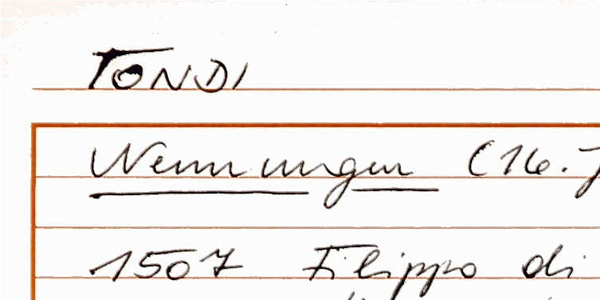 TONDI
Nennungen (16.J
1507 Filippo di